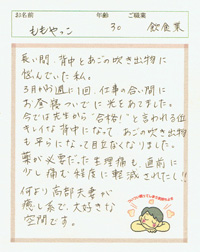 お名前 年齢 ご職業
ももやっこ 30 飲食業
長い間、背中とあごの吹き出物に
悩んでいた私。
3月から週に1回、仕事の合間に
お灸
今では先生から"合格!"と言われる位
キレイな背中になって あごの吹き出物
も平らになって目立たなくなりました。
薬が必要だった生理痛も、直前に
少し痛む程度に軽減されたし!!
何より高部夫妻が
癒し系で、大好きな
空間です。